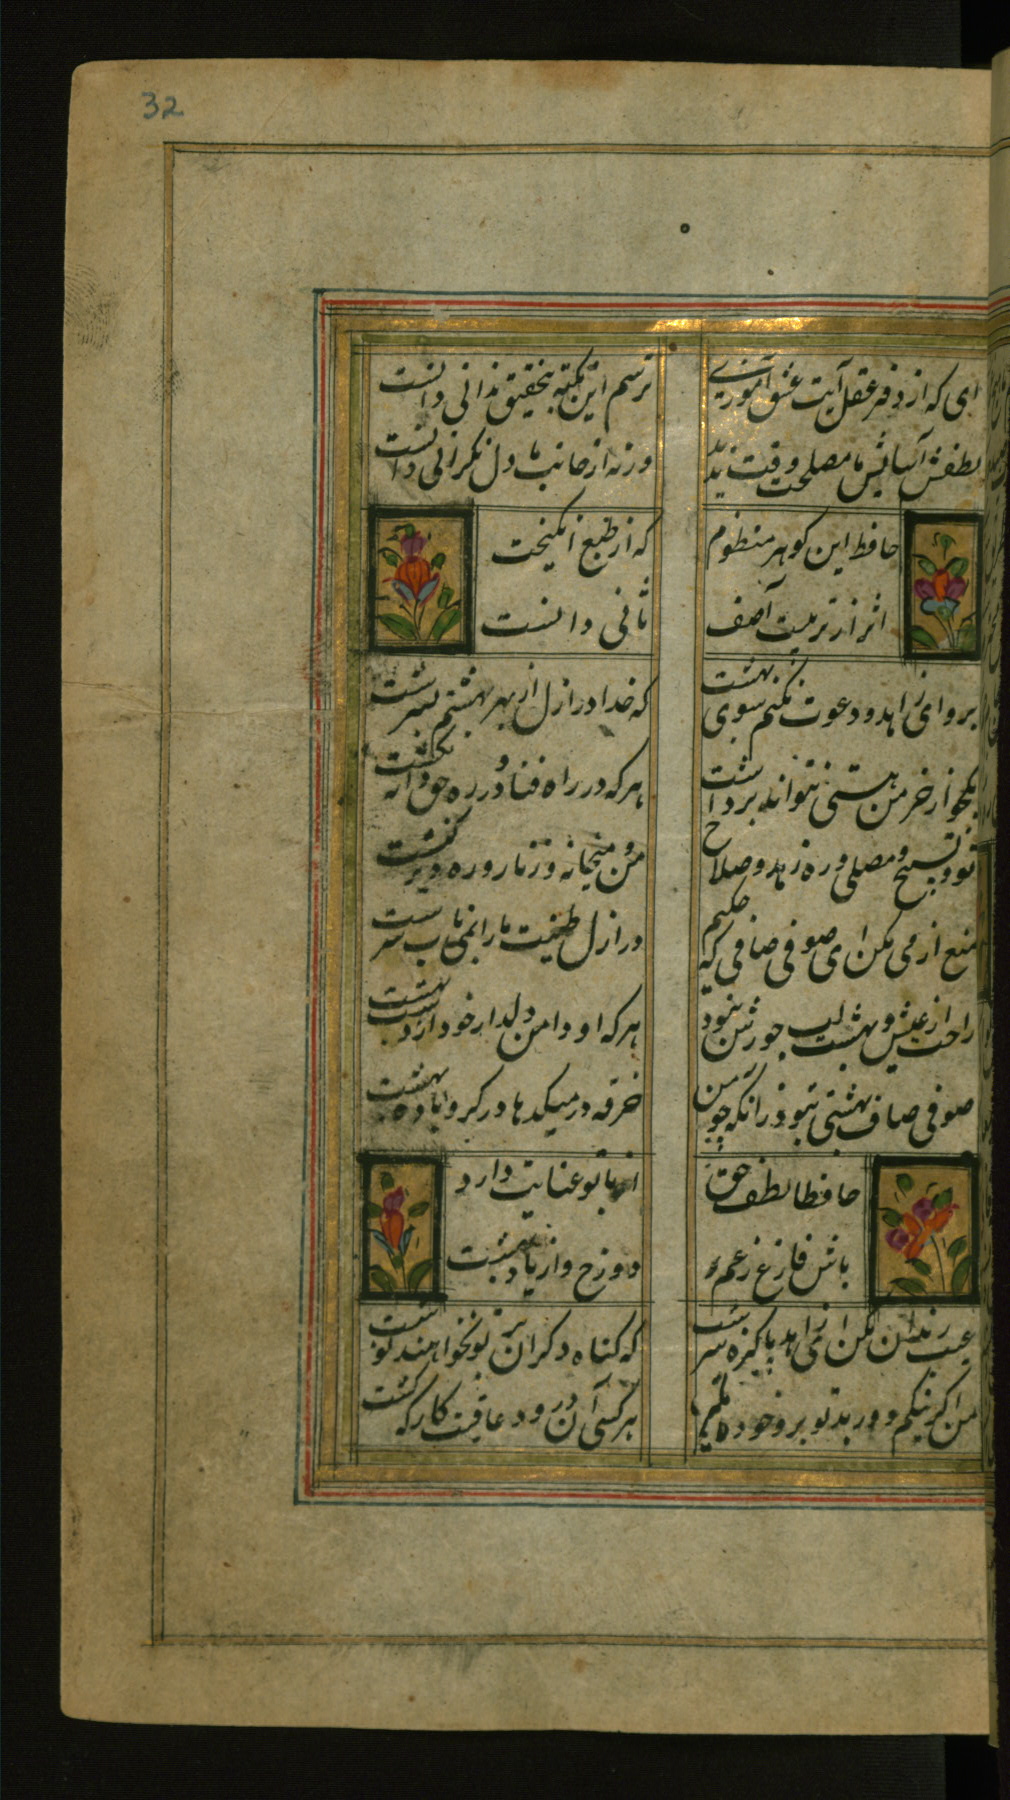 32
ای که از دفتر عقل آیت عشق آموزی
ترسم این نکته بتحقیق ندانی دانست
لطفش آسایش ما مصلحت وقت ندید
ورنه از جانب ما دل نگرانی دانست
حافظ این کوهر منظوم
که از طبع انکیخت
اثر از تربیت آصف
ثانی دانست
برو ای زاهد و دعوت نکنم سوی بهشت
که خدا در ازل از بهر بهشتم بسرشت
یکجو از خرمن هستی نتواند برداشت
هرکه در راه فنا در ره حق دانه نکشت
تو و تسبیح و مصلی و ره زهد و صلاح
من و میخانه و زنار و ره دیر کنشت
منع از می مکن ای صوفی صافی که حکیم
در ازل طینت ما را نمی ناب سرشت
راحت از عیش و بهشت لب حورش نبود
هرکه او دامن دلدار خود از دست بهشت
صوفی صاف بهشتی نبود زانکه چو من
خرقه در میکدها در کرو باده بهشت
حافظا لطف حق
ار با تو عنایت دارد
باش فارغ ز غم
دوزخ و از یاد بهشت
عیب رندان مکن ای زاهد پاکیزه سرشت
که کناه دکران بر تو نخواهند نوشت
من اکر نیکم و ور بد تو برو خود
هر کسی آن درود عاقبت کار که کشت